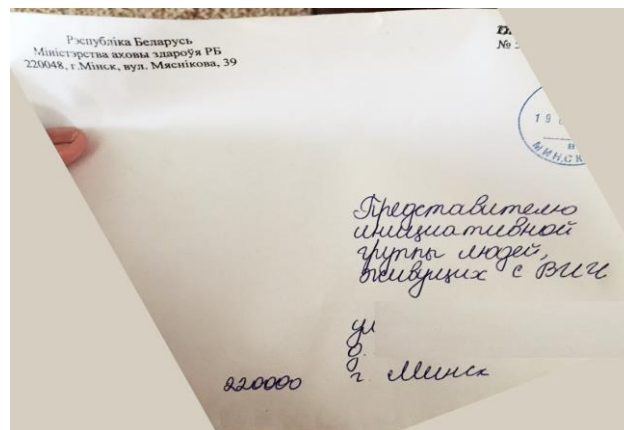 Рэспубліка Беларусь
Міністэрства аховы здароўя РБ
220048, г.Мінск, вул. Мяснікова, 39
№
19
МИНСК
Представителю
инициативной
группы людей,
живущих с ВИЧ
ул
д.
220000 г. Минск